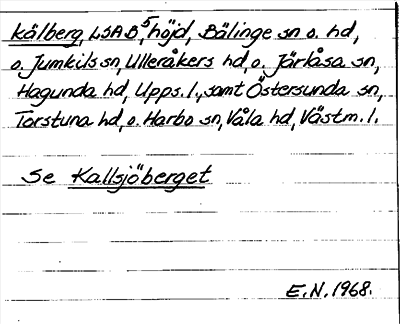 kälberg, LSA B⁵, höjd, Bälinge sn o. hd,
o. Jumkils sn, Ulleråkers hd, o. Järlåsa sn,
Hagunda hd, Upps. l., samt Östersunda sn,
Torstuna hd, o. Harbo sn, Våla hd, Västm. l.
Se Kallsjöberget
E.N. 1968.